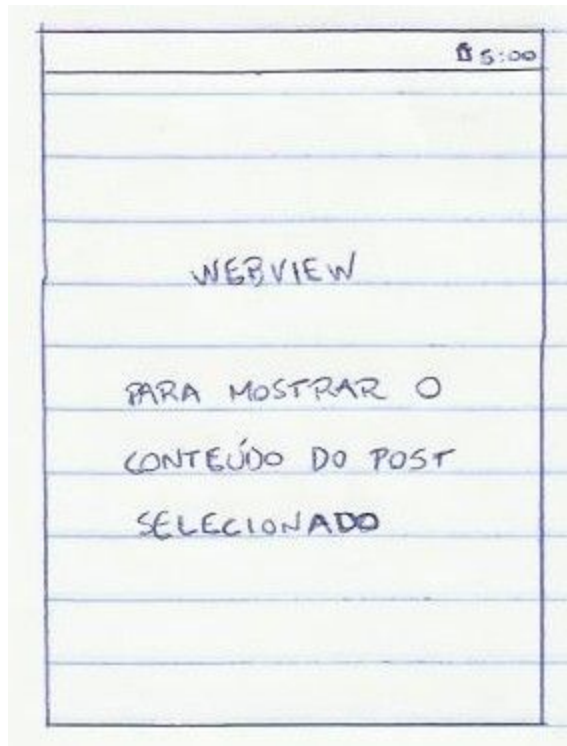 5:00
WEBVIEW
PARA MOSTRAR O
CONTEÚDO DO POST
SELECIONADO